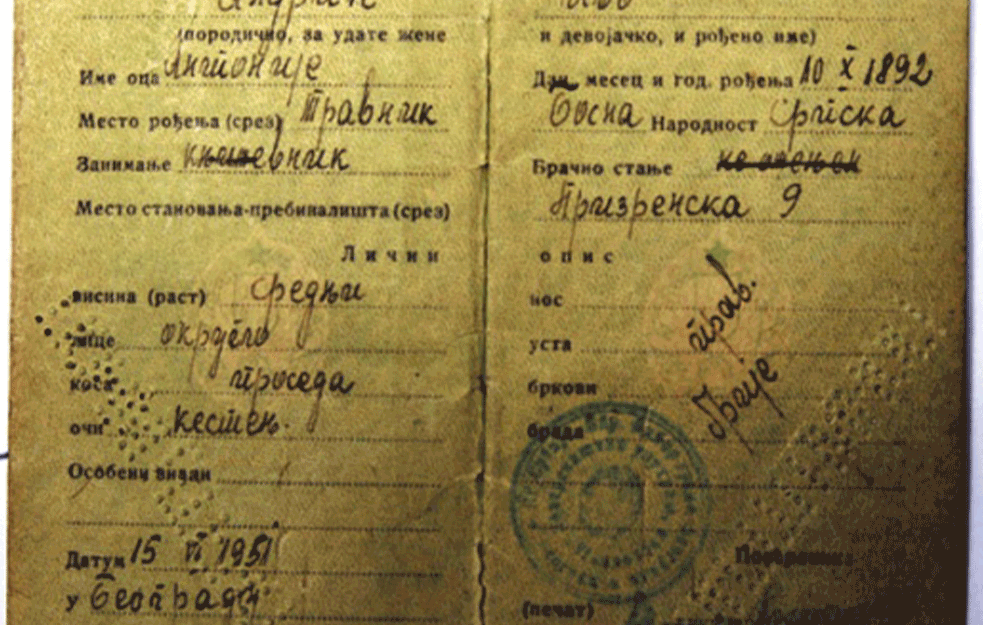 Андрић Иво
(породично, за удате жене и девојачко, и рођено име)
Име оца Антоније Дан, месец и год. рођења 10 X 1892
Место рођења (срез) Травник Босна Народност Српска
Занимање књижевник Брачно стање
Место становања-пребивалишта (срез) Призренска 9
Лични опис
висина (раст) средњи нос прав.
лице округло уста
коса проседа бркови
очи кестењ. брада брије
Особени знаци
Датум 15 VI 1951
У Београду (печат)